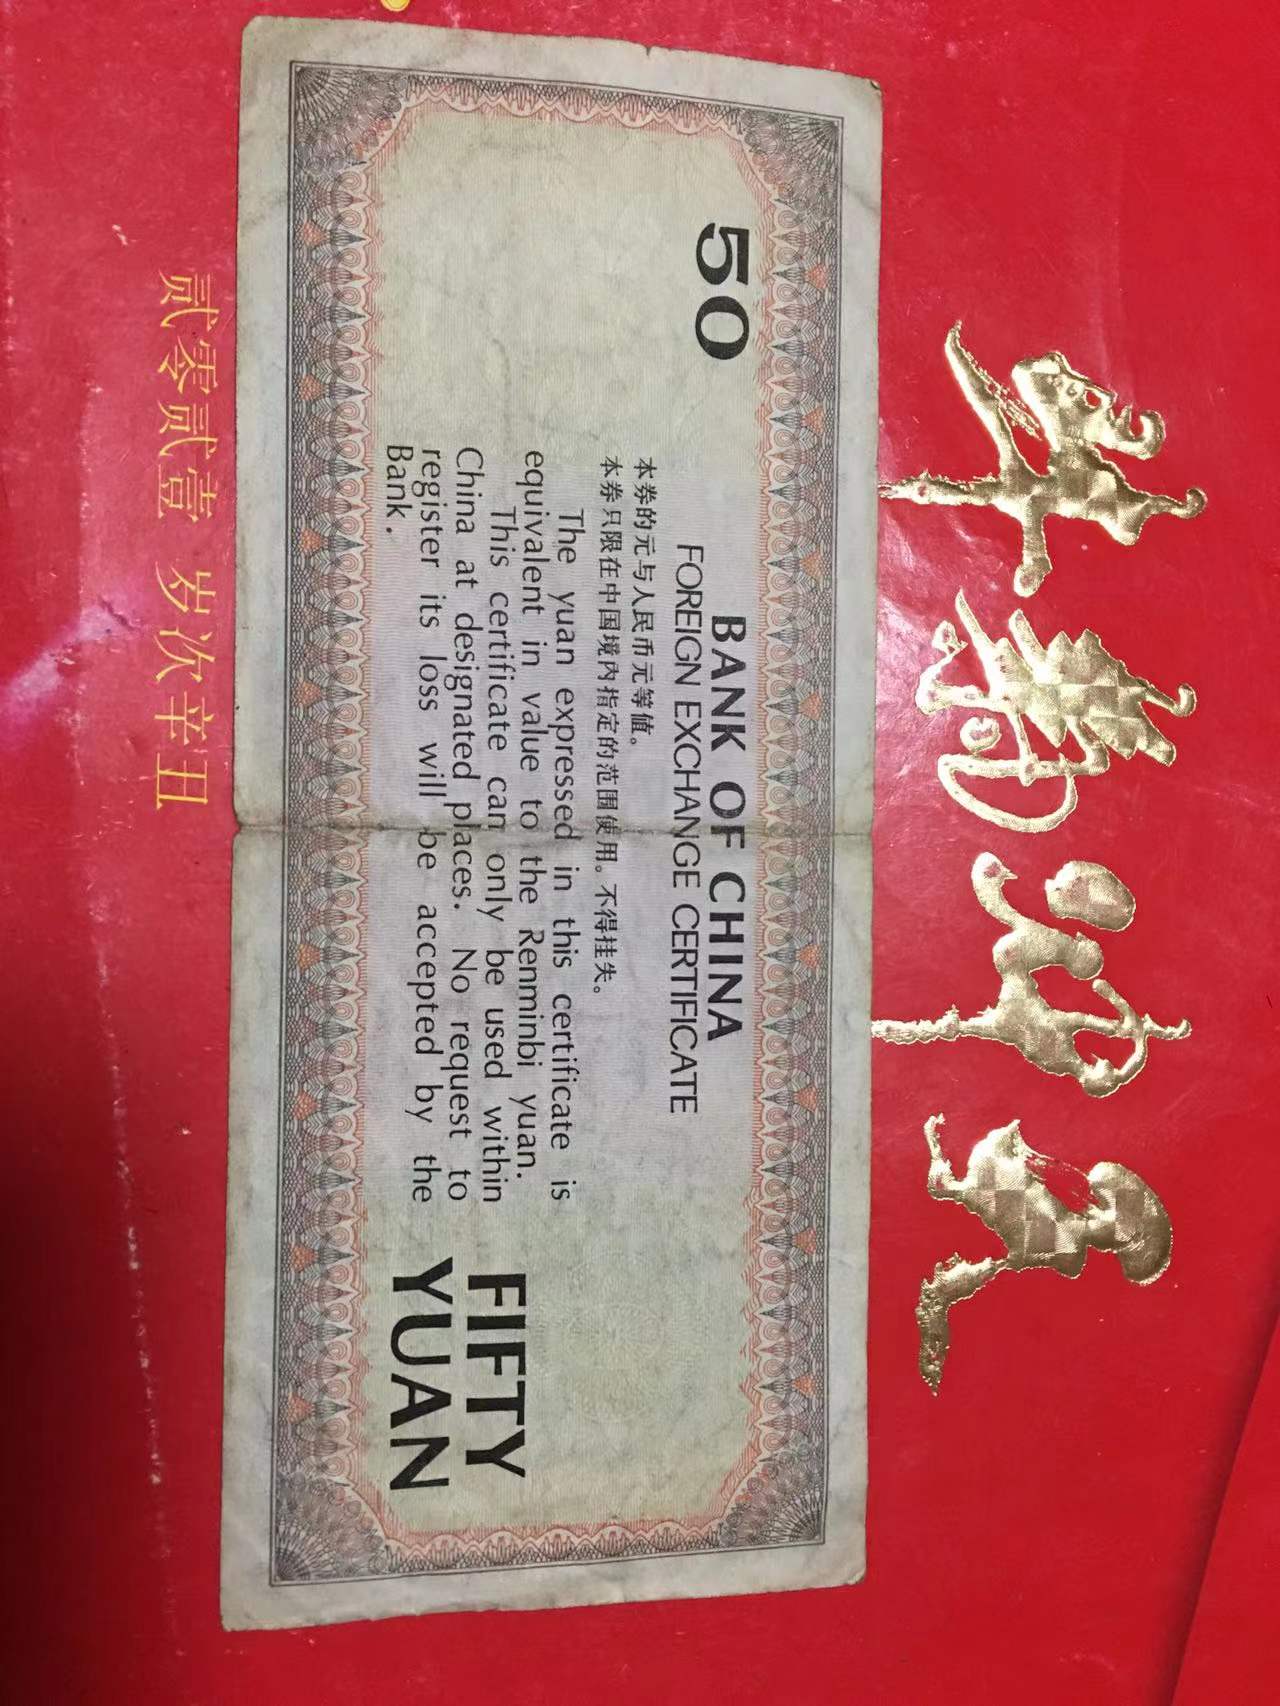 50
BANK OF CHINA
FOREIGN EXCHANGE CERTIFICATE
本券的元与人民币元等值。
本券只限在中国境内指定的范围使用。不得挂失。
The yuan expressed in this certificate is
equivalent in value to the Renminbi yuan.
This certificate can only be used within
China at designated places. No request to
register its loss will be accepted by the
Bank.
FIFTY
YUAN
贰零贰壹 岁次辛丑